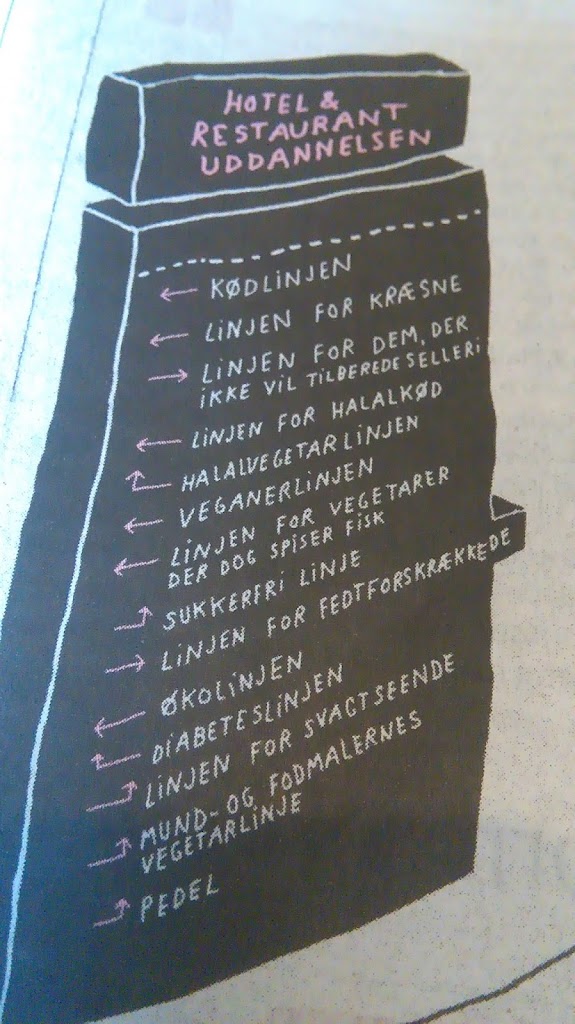 HOTEL &
RESTAURANT
UDDANNELSEN
← KØDLINJEN
← LINJEN FOR KRÆSNE
→ LINJEN FOR DEM, DER
IKKE VIL TILBEREDE SELLERI
← LINJEN FOR HALALKØD
HALALVEGETARLINJEN
← VEGANERLINJEN
← LINJEN FOR VEGETARER
DER DOG SPISER FISK
SUKKERFRI LINJE
→ LINJEN FOR FEDTFORSKRÆKKEDE
← ØKOLINJEN
DIABETESLINJEN
LINJEN FOR SVAGTSEENDE
MUND- OG FODMALERNES
VEGETARLINJE
PEDEL